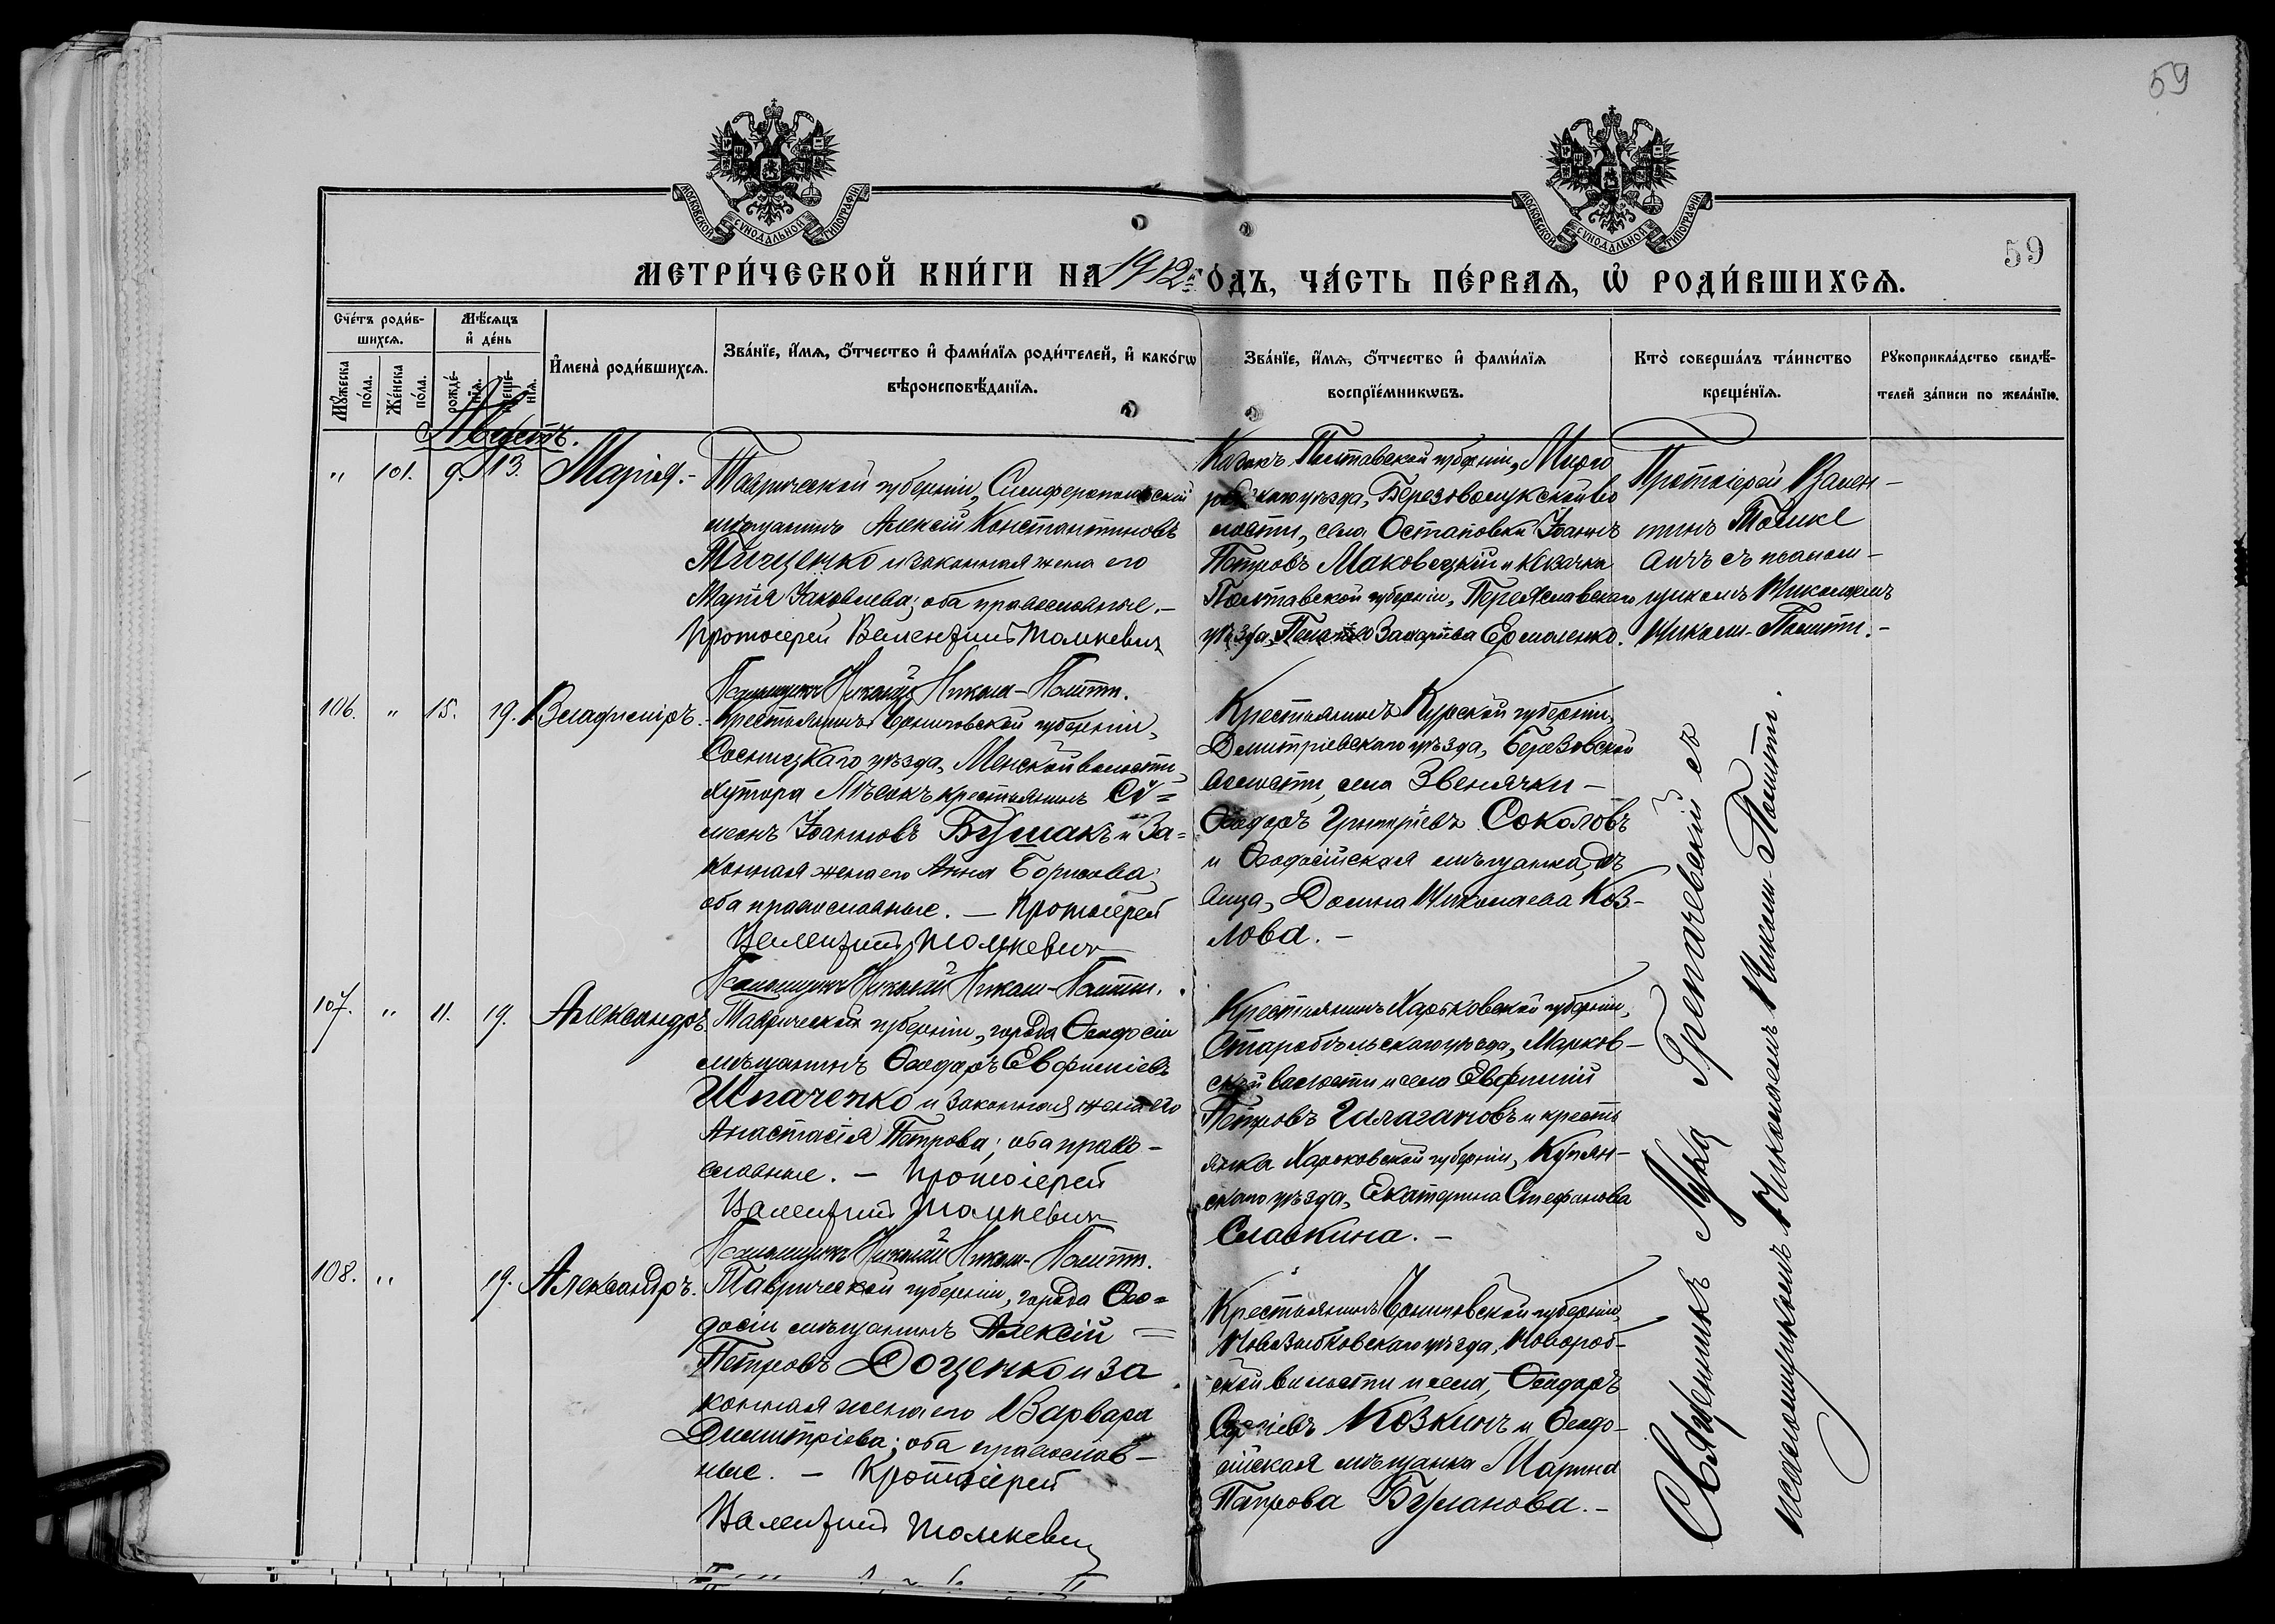 59
МОСКОВСКОЙ СѴНОДАЛЬНОЙ ТИПОГРАФІИ
МОСКОВСКОЙ СѴНОДАЛЬНОЙ ТИПОГРАФІИ
59
МЕТРИ́ЧЕСКОЙ КНИ́ГИ НА 1912 г
О́ДЪ, ЧА́СТЬ ПЕ́РВАѦ, Ѡ҆ РОДИ́ВШИХСѦ.
Сче́тъ роди́в-
шихсѧ.
Мѣ́сѧцъ
и҆ де́нь
Мꙋ́жеска
по́ла.
Же́нска
по́ла.
рожде́-
нїѧ.
креще-
нїѧ.
И҆мена̀ роди́вшихсѧ.
Зва́нїе, и҆́мѧ, ѻ҆́тчество и҆ фами́лїѧ роди́телей, и҆ како́гѡ
вѣроисповѣ́данїѧ.
Зва́нїе, и҆́мѧ, ѻ҆́тчество и҆ фами́лїѧ
воспрїе́мникѡвъ.
Кто̀ соверша́лъ та́инство
креще́нїѧ.
Рꙋкоприкла́дство свидѣ́-
телей за́писи по жела́нїю.
Августъ.
" 101. 9. 13. Марія.-
Таврической губерніи, Симферопольскій
мѣщанинъ Алексій Константиновъ
Тищенко и законная жена его
Марія Іаковлева; оба православные.-
Протоіерей Валентинъ Томкевич
Псаломщикъ Николай Никам-Палити.
Казакъ Полтавской губерніи, Мирго
родскаго уѣзда, Березоволукской во
лости, села Остаповки Іоаннъ
Петровъ Маковецкій и казачка
Полтавской губерніи, Переяславскаго
уѣзда, Захаріева Ермоленко.
Протоіерей Вален-
тинъ Томке
вичъ съ псалом-
щикомъ Николаемъ
106. " 15. 19. Владиміръ.
-Крестьянинъ Черниговской губерніи,
Сосницкаго уѣзда, Менской волости,
хутора Лѣсокъ крестьянинъ Сѵ=
меонъ Іоанновъ Бушакъ и за=
конная жена его Анна Борисова;
оба православные. - Протоіерей
Валентинъ Томкевич
Псаломщикъ Николай
Крестьянинъ Курской губерніи,
Дмитріевскаго уѣзда, Березовской
волости, села Звенячки -
Ѳеодоръ Григоріевъ Соколовъ
и Ѳеодосійская мѣщанка дѣ
вица, Домна Николаева Коз-
лова. -
107. " 11. 19. Александръ.
Таврической губерніи, города Ѳеодосіи
мѣщанинъ Ѳеодоръ Евфиміевъ
Шпаченко и законная жена его
Анастасія Петрова; оба право-
славные. - Протоіерей
Валентинъ Томкевич
Псаломщикъ Николай
Крестьянинъ Харьковской губерніи,
Старобѣльскаго уѣзда, Марков-
ской волости и села Евфимій
Петровъ и кресть
янка Харьковской губерніи, Купян-
скаго уѣзда, Екатерина Стефанова
Славкина. -
108. " 19. Александръ.
Таврической губерніи, города Ѳео=
досіи мѣщанинъ Алексій =
Петровъ Доценко и за
конная жена его Варвара
Димитріева; оба православ-
ные. - Протоіерей
Валентинъ Томкевич
Крестьянинъ Черниговской губерніи,
Новозыбковскаго уѣзда,
ской волости и села, Ѳеодоръ
Козкинъ и Ѳеодо-
сійская мѣщанка Марина
Петрова Буланова. -
Священникъ Лука съ
псаломщикомъ Николаемъ